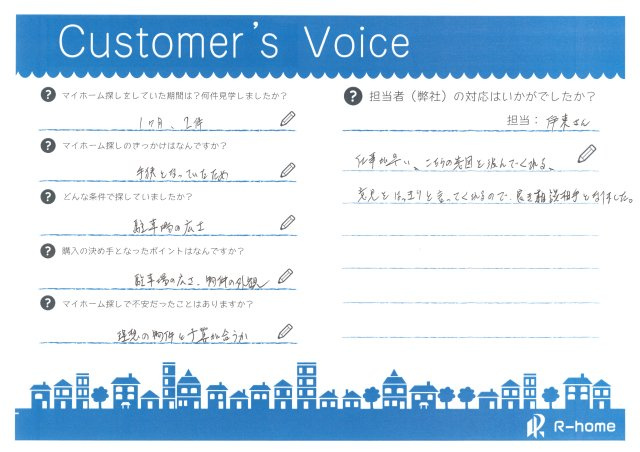 Customer's Voice
? マイホーム探しをしていた期間は?何件見学しましたか?
1ヶ月、2件
? マイホーム探しのきっかけはなんですか?
手狭となっていたため
? どんな条件で探していましたか?
駐車場の広さ
? 購入の決め手となったポイントはなんですか?
駐車場の広さ、物件の外観
? マイホーム探しで不安だったことはありますか?
理想の物件と予算が合うか
? 担当者(弊社)の対応はいかがでしたか?
担当: 伊東さん
仕事が早い、こちらの意図を汲んでくれる、
意見をはっきりと言ってくれるので、良き相談相手となりました。
R-home